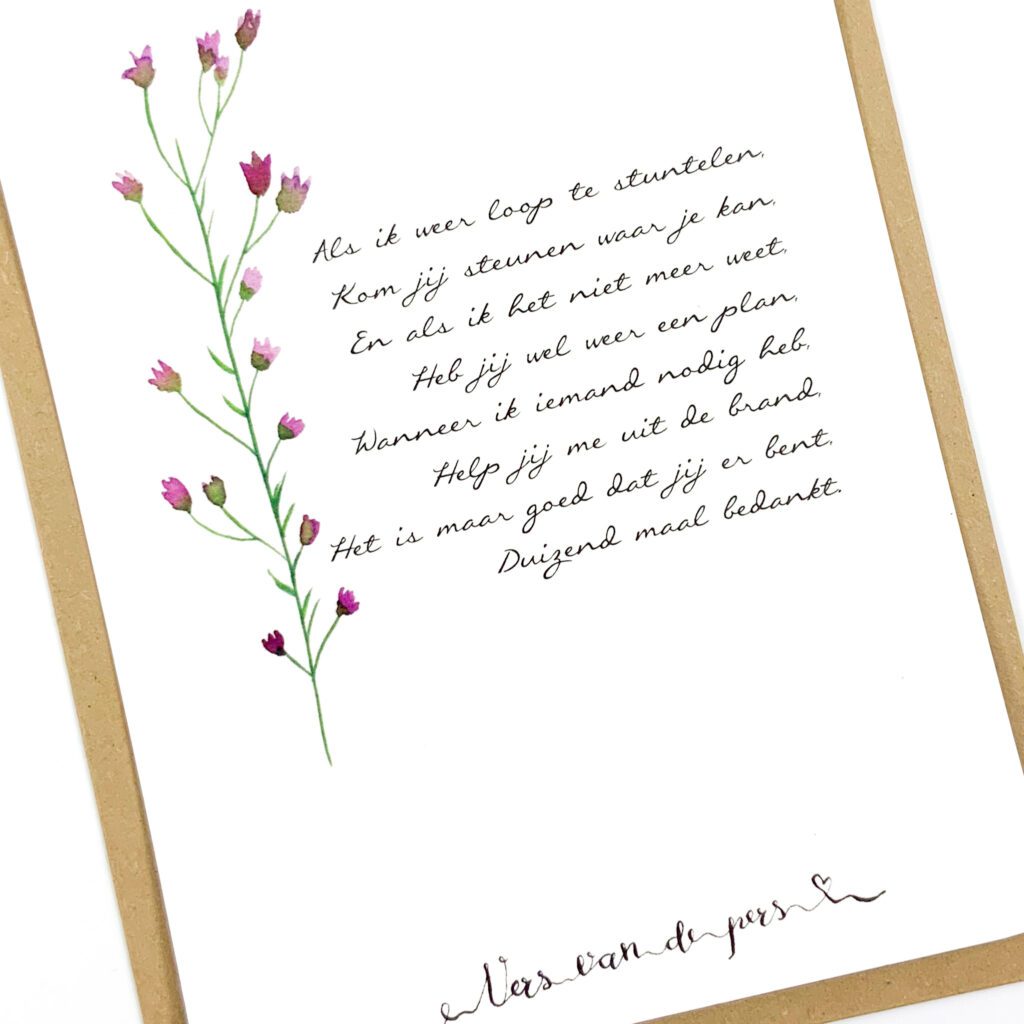 Als ik weer loop te stuntelen,
Kom jij steunen waar je kan,
En als ik het niet meer weet,
Heb jij wel weer een plan,
Wanneer ik iemand nodig heb,
Help jij me uit de brand,
Het is maar goed dat jij er bent,
Duizend maal bedankt.
Vers van de pers